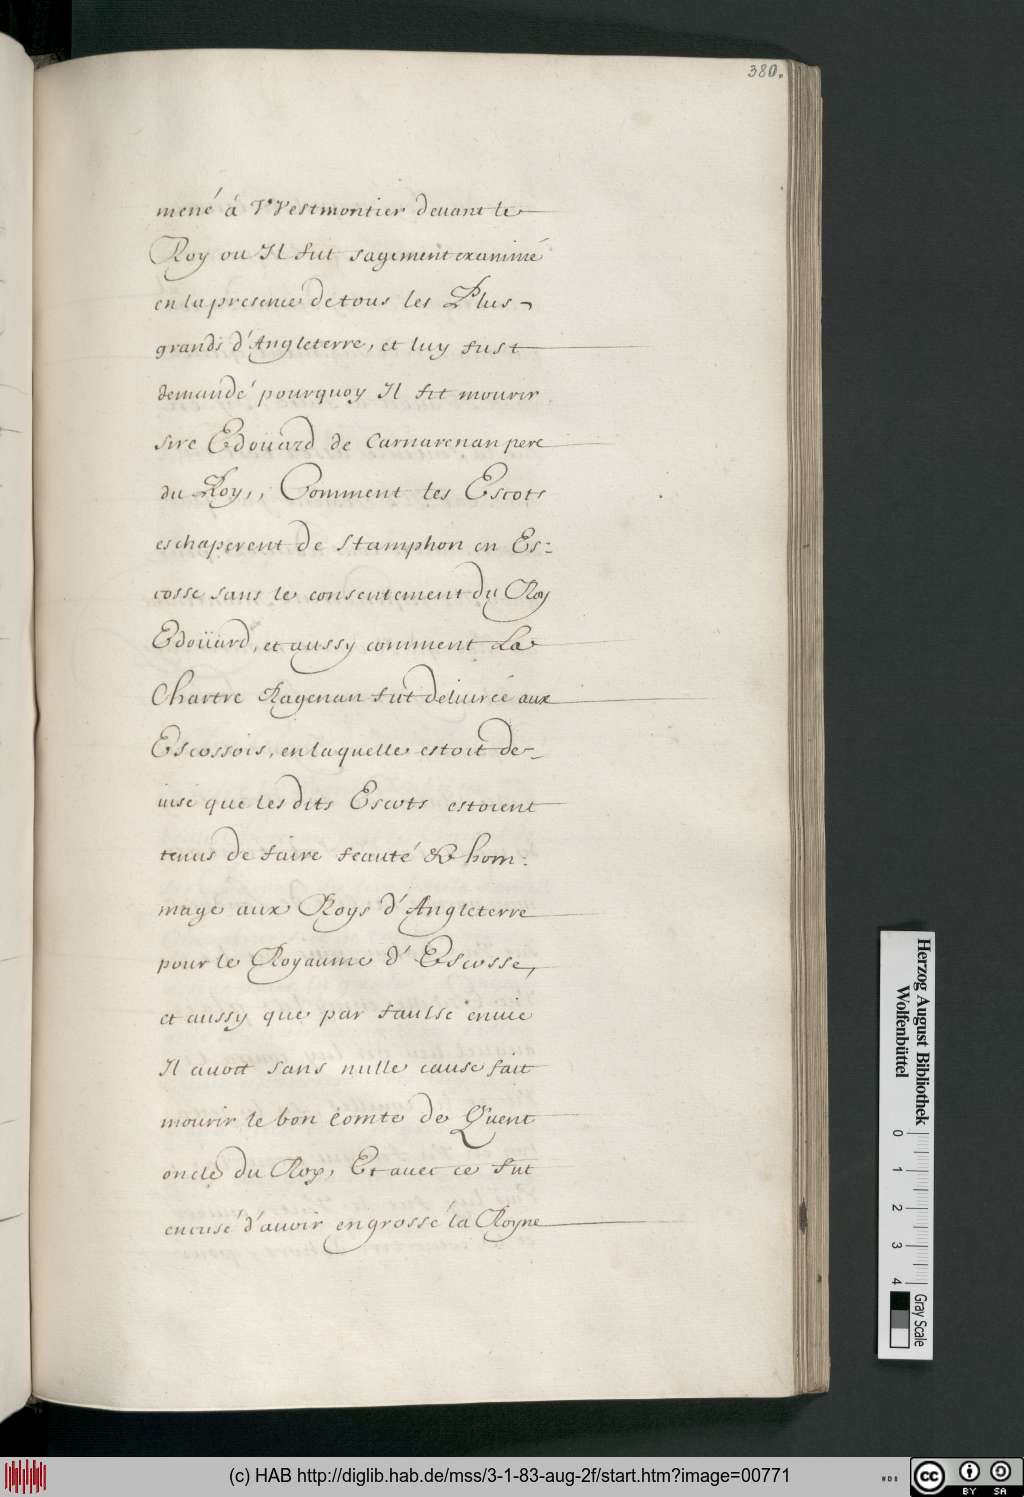 380.
mené á VVestmontier deuant le
Roy ou Il fut sagement examiné
en la presence de tous les Plus
grands d'Angleterre, et luy fust
demandé pourquoy Il fit mourir
sire Edoüard de Carnarenan pere
du Roy,, Comment les Escots
eschaperent de Stamphon en Es=
cosse sans le consentement du Roy
Edoüard, et aussy comment La
Chartre Ragenan fut deliurée aux
Escossois, en laquelle estoit de-
uisé que les dits Escots estoient
tenus de faire feauté & hom=
mage aux Roys d'Angleterre
pour le Royaume d'Escosse,
et aussy que par faulse enuie
Il auoit sans nulle cause fait
mourir le bon Comte de Quent
oncle du Roy, Et auec ce fut
encusé d'auoir engrossé la Royne
Herzog August Bibliothek
Wolfenbüttel
0 1 2 3 4
Gray Scale
(c) HAB http://diglib.hab.de/mss/3-1-83-aug-2f/start.htm?image=00771
WDB
cc BY SA